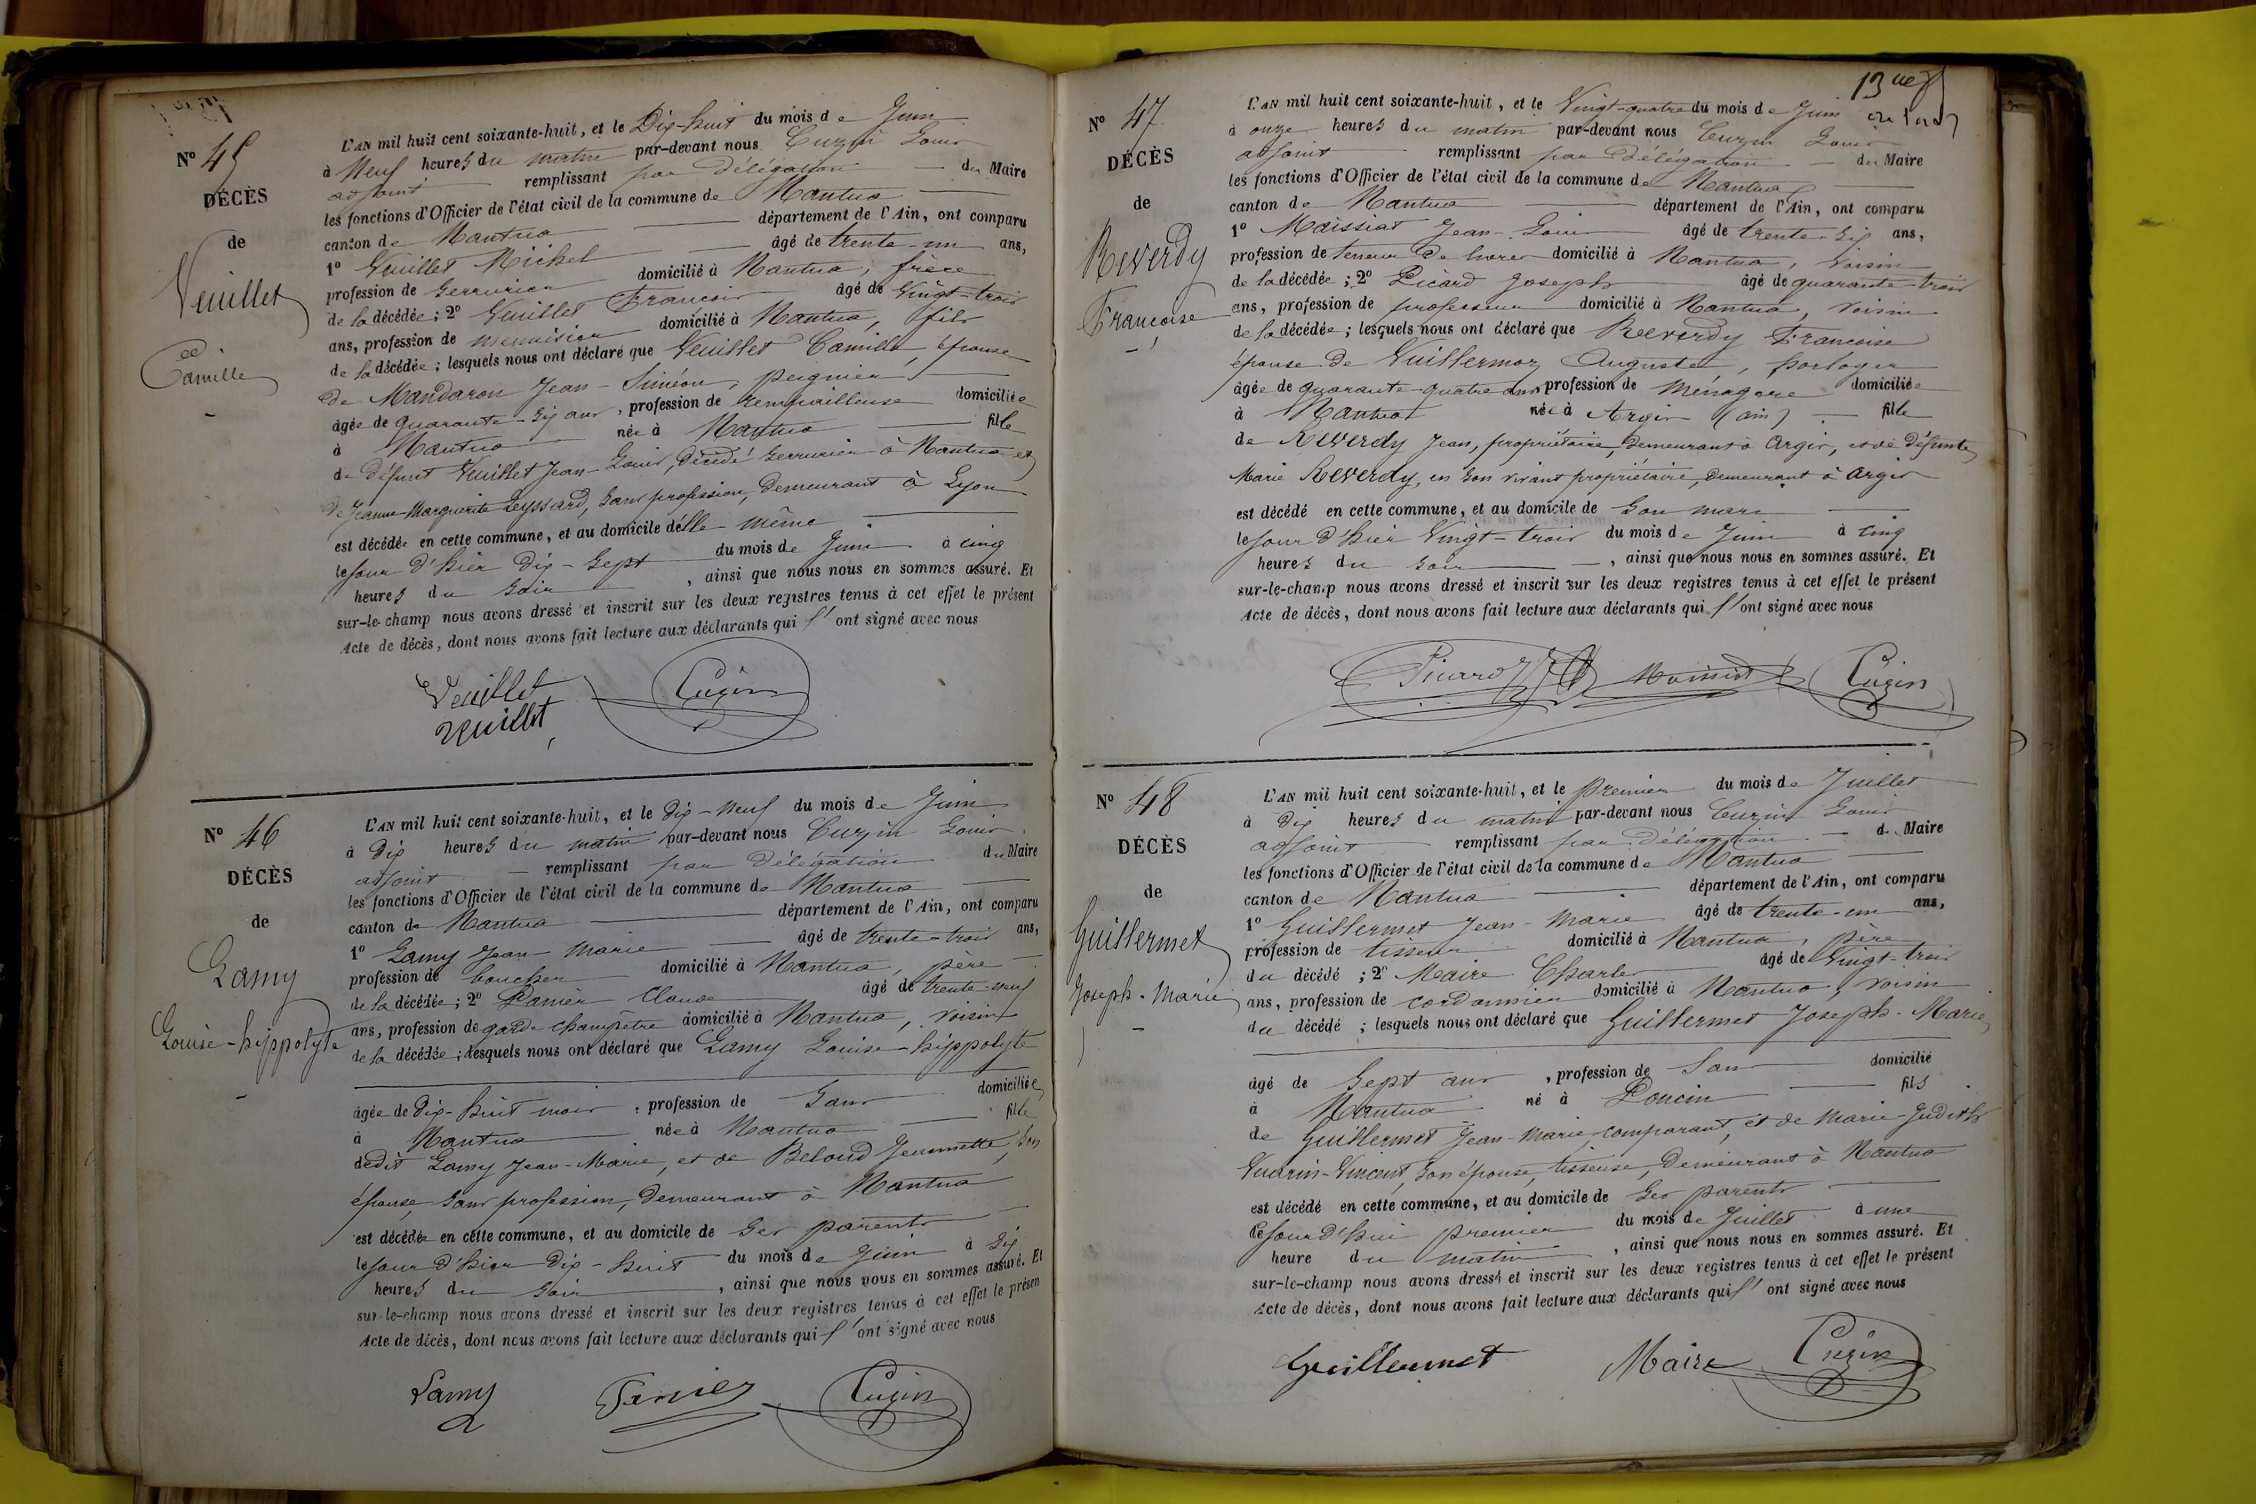 N° 45
DÉCÈS
de
Veuillet
Camille
L'AN mil huit cent soixante-huit, et le Dix-huit du mois de Juin
à Neuf heures du matin par-devant nous Cuzin Louis
adjoint remplissant par délégation du Maire
les fonctions d'Officier de l'état civil de la commune de Nantua
canton de Nantua département de l'Ain, ont comparu
1° Veuillet Michel âgé de trente-un ans,
profession de Serrurier domicilié à Nantua, frère
de la décédée ; 2° Veuillet François âgé de Vingt-trois
ans, profession de menuisier domicilié à Nantua, fils
de la décédée ; lesquels nous ont déclaré que Veuillet Camille, épouse
de Mandaron Jean-Siméon, peignier
âgée de quarante-six ans, profession de rempailleuse domiciliée
à Nantua née à Nantua fille
de défunt Veuillet Jean-Louis, décédé serrurier à Nantua et
de Jeanne-Marguerite Leyssard, sans profession, demeurant à Lyon
est décédée en cette commune, et au domicile d'elle même
le jour d'hier dix-sept du mois de Juin à cinq
heures du soir, ainsi que nous nous en sommes assuré. Et
sur-le-champ nous avons dressé et inscrit sur les deux registres tenus à cet effet le présent
Acte de décès, dont nous avons fait lecture aux déclarants qui l'ont signé avec nous
Veuillet Cuzin
Veuillet
N° 46
DÉCÈS
de
Lamy
Louise-hippolyte
L'AN mil huit cent soixante-huit, et le dix-neuf du mois de Juin
à dix heures du matin par-devant nous Cuzin Louis
adjoint remplissant par délégation du Maire
les fonctions d'Officier de l'état civil de la commune de Nantua
canton de Nantua département de l'Ain, ont comparu
1° Lamy Jean-Marie âgé de trente-trois ans,
profession de boucher domicilié à Nantua, père
de la décédée ; 2° Claude âgé de trente-neuf
ans, profession de garde champêtre domicilié à Nantua, voisin
de la décédée ; lesquels nous ont déclaré que Lamy Louise-hippolyte
âgée de dix-huit mois, profession de Sans domiciliée
à Nantua née à Nantua fille
dudit Lamy Jean-Marie, et de Beloud Jeannette, son
épouse, sans profession, demeurant à Nantua
est décédée en cette commune, et au domicile de ses parents
le jour d'hier dix-huit du mois de Juin à six
heures du soir, ainsi que nous nous en sommes assuré. Et
sur-le-champ nous avons dressé et inscrit sur les deux registres tenus à cet effet le présen
Acte de décès, dont nous avons fait lecture aux déclarants qui l'ont signé avec nous
Lamy Cuzin
13
N° 47
DÉCÈS
de
Reverdy
Françoise
L'AN mil huit cent soixante-huit, et le Vingt-quatre du mois de Juin
à onze heures du matin par-devant nous Cuzin Louis
adjoint remplissant par délégation du Maire
les fonctions d'Officier de l'état civil de la commune de Nantua
canton de Nantua département de l'Ain, ont comparu
1° Maissiat Jean-Louis âgé de trente-six ans,
profession de teneur de livres domicilié à Nantua, voisin
de la décédée ; 2° Picard Joseph âgé de quarante-trois
ans, profession de professeur domicilié à Nantua, voisin
de la décédée ; lesquels nous ont déclaré que Reverdy Françoise
épouse de Vuillermoz Auguste, horloger
âgée de quarante-quatre ans profession de Ménagère domiciliée
à Nantua née à Argis (ain) fille
de Reverdy Jean, propriétaire, demeurant à Argis, et de défunte
Marie Reverdy, en son vivant propriétaire, demeurant à Argis
est décédé en cette commune, et au domicile de Son mari
le jour d'hier Vingt-trois du mois de Juin à cinq
heures du soir, ainsi que nous nous en sommes assuré. Et
sur-le-champ nous avons dressé et inscrit sur les deux registres tenus à cet effet le présent
Acte de décès, dont nous avons fait lecture aux déclarants qui l'ont signé avec nous
Picard Maissiat Cuzin
N° 48
DÉCÈS
de
Guillermet
Joseph-Marie
L'AN mil huit cent soixante-huit, et le Premier du mois de Juillet
à dix heures du matin par-devant nous Cuzin Louis
adjoint remplissant par délégation du Maire
les fonctions d'Officier de l'état civil de la commune de Nantua
canton de Nantua département de l'Ain, ont comparu
1° Guillermet Jean-Marie âgé de trente-un ans,
profession de tisseur domicilié à Nantua, père
du décédé ; 2° Maire Charles âgé de Vingt-trois
ans, profession de cordonnier domicilié à Nantua, voisin
du décédé ; lesquels nous ont déclaré que Guillermet Joseph-Marie
âgé de Sept ans, profession de Sans domicilié
à Nantua né à Poncin fils
de Guillermet Jean-Marie, comparant, et de Marie-Judith
Vuarin-Vincent, son épouse, tisseuse, demeurant à Nantua
est décédé en cette commune, et au domicile de ses parents
Ce jour d'hui premier du mois de Juillet à une
heure du matin, ainsi que nous nous en sommes assuré. Et
sur-le-champ nous avons dressé et inscrit sur les deux registres tenus à cet effet le présent
Acte de décès, dont nous avons fait lecture aux déclarants qui l'ont signé avec nous
Guillermet Maire Cuzin